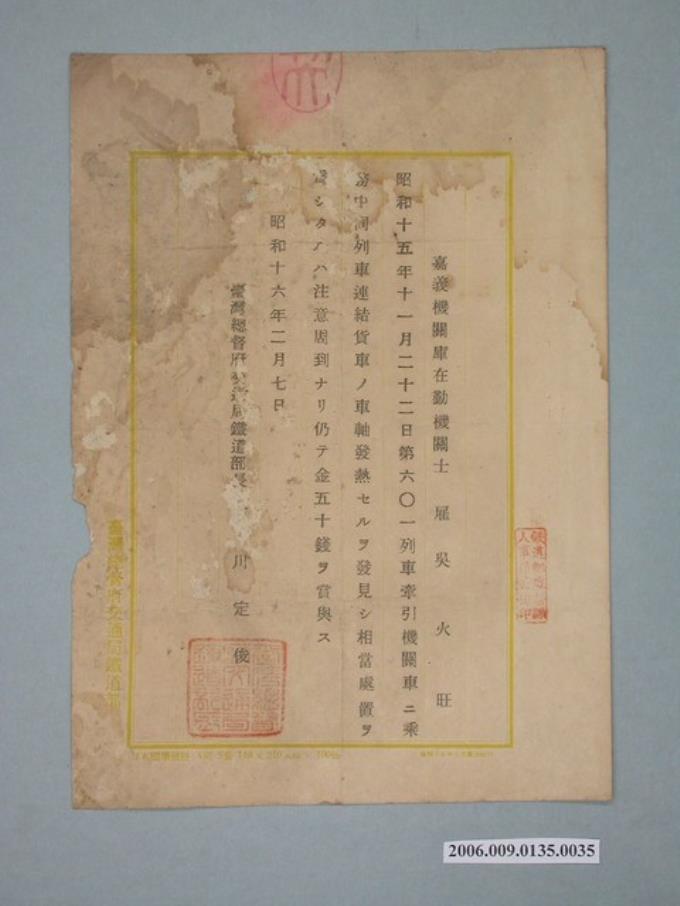 嘉義機關庫在勤機關士 雇 吳火旺
昭和十五年十一月二十二日第六〇一列車牽引機關車ニ乘
務中同列車連結貨車ノ車軸發熱セルヲ發見シ相當處置ヲ
シタルハ注意周到ナリ仍テ金五十錢ヲ賞與ス
昭和十六年二月七日
臺灣總督府交通局鐵道部長 川定俊
臺灣總督府交通局鐵道部
2006.009.0135.0035